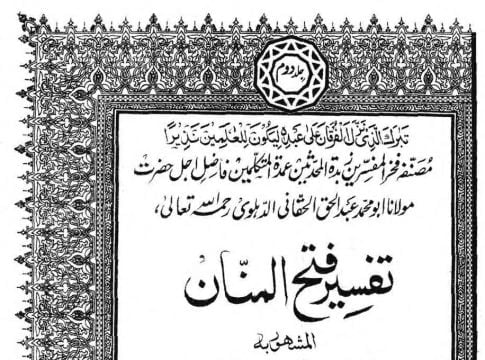 جلد دوم
تبرك الذي نزل الفرقان على عبده ليكون للعلمين نذيرا
مصنفہ فخر المفسرین زبدۃ المحدثین عمدۃ المتکلمین فاضل اجل حضرت
مولانا ابو محمد عبد الحق الحقانی الدہلوی رحمہ اللہ تعالیٰ،
تفسیر فتح المنّان
المشہور بہ